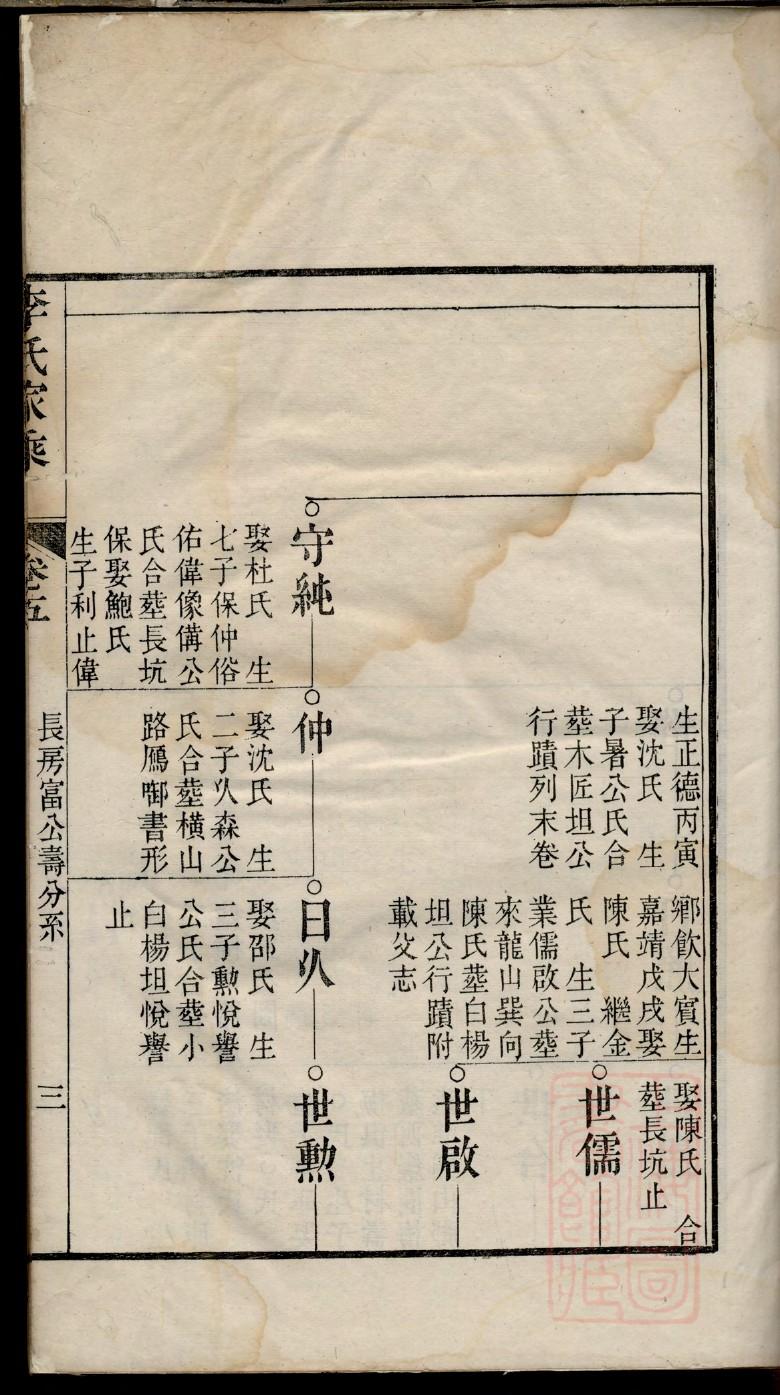 生正德丙寅
娶沈氏　生
子暑公氏合
塟木匠坦公
行蹟列末卷
鄉飲大賓生
嘉靖戊戌娶
陳氏　繼金
氏　生三子
業儒啟公塟
來龍山巽向
陳氏塟白楊
坦公行蹟附
載父志
娶陳氏　合
塟長坑止
世儒
世啟
守純
娶杜氏　生
七子保仲俗
佑偉像傋公
氏合塟長坑
保娶鮑氏
生子利止偉
仲
娶沈氏　生
二子㕥森公
氏合塟橫山
路鴈啣書形
日㕥
娶邵氏　生
三子勲悅譽
公氏合塟小
白楊坦悅譽
止
世勲
李氏家乘
卷五
長房富公壽分系
三